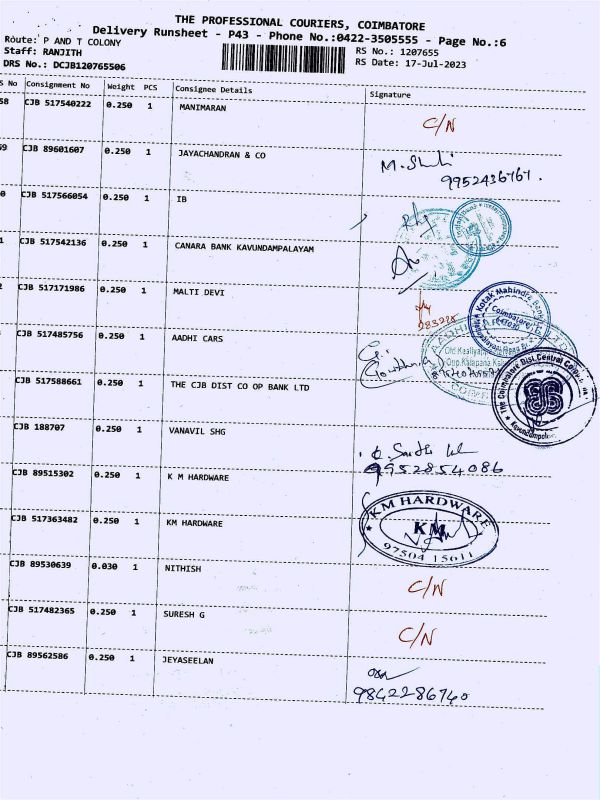 THE PROFESSIONAL COURIERS, COIMBATORE
Delivery Runsheet - P43 - Phone No.:0422-3505555 - Page No.:6
Route: P AND T COLONY
RS No.: 1207655
Staff: RANJITH
RS Date: 17-Jul-2023
DRS No.: DCJB120765506
S No Consignment No Weight PCS Consignee Details Signature
58 CJB 517540222 0.250 1 MANIMARAN C/N
59 CJB 89601607 0.250 1 JAYACHANDRAN & CO
9952436767.
0 CJB 517566054 0.250 1 IB
1 CJB 517542136 0.250 1 CANARA BANK KAVUNDAMPALAYAM
2 CJB 517171986 0.250 1 MALTI DEVI
Kotak Mahindra Bank
Coimbatore
CJB 517485756 0.250 1 AADHI CARS
CJB 517588661 0.250 1 THE CJB DIST CO OP BANK LTD
The Coimbatore Dist Central
CJB 188707 0.250 1 VANAVIL SHG
9952854086
CJB 89515302 0.250 1 K M HARDWARE
KM HARDWARE
KM
97504 15611
CJB 517363482 0.250 1 KM HARDWARE
CJB 89530639 0.030 1 NITHISH C/N
CJB 517482365 0.250 1 SURESH G C/N
CJB 89562586 0.250 1 JEYASEELAN
9842286740